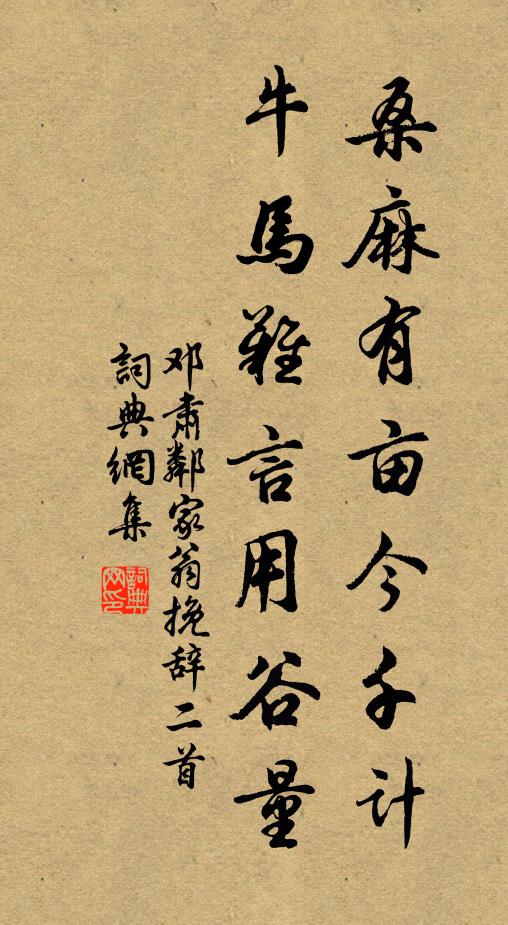 桑麻有亩今千计
牛馬難言用谷量
邓肃鄰家翁挽辞二首
詞典網集
詞典网印